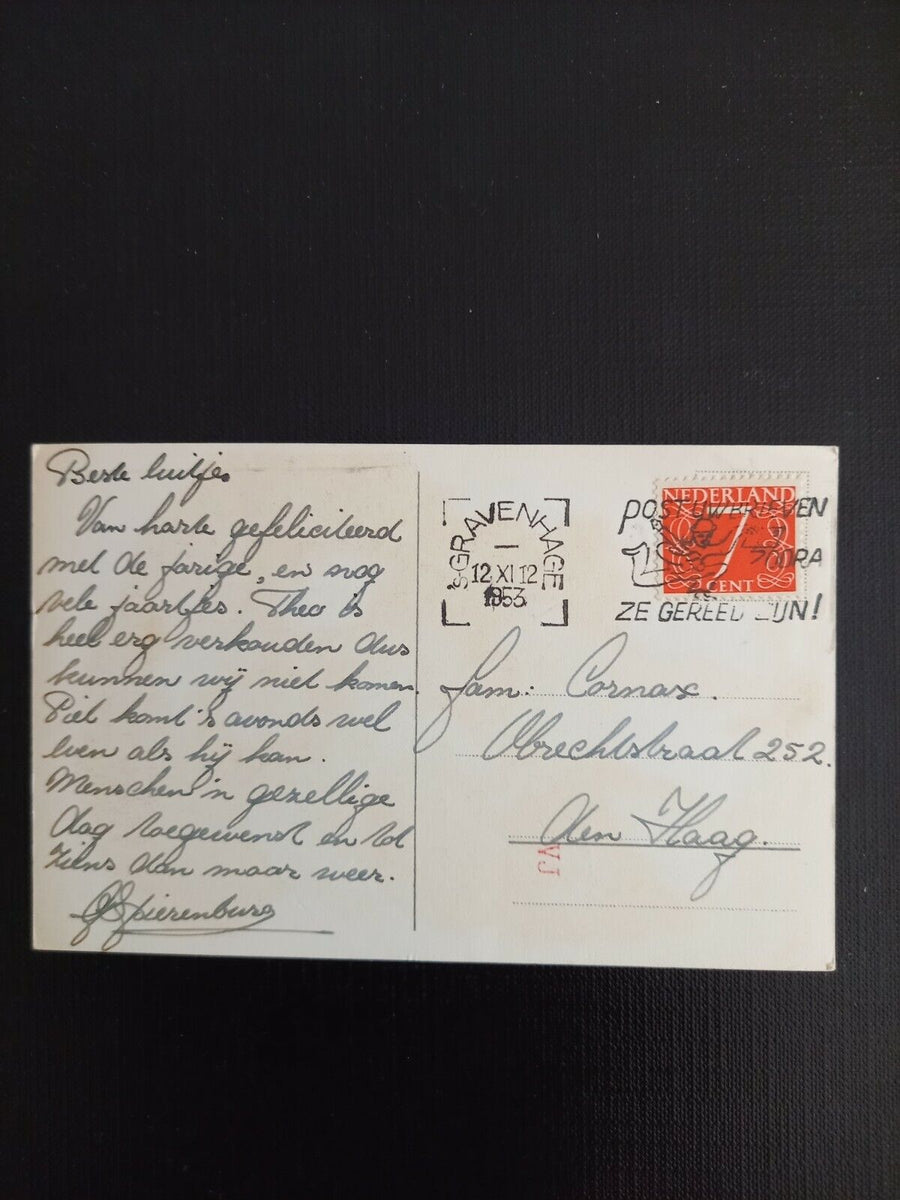 Beste luitjes
Van harte gefeliciteerd
met de jarige, en nog
vele jaartjes. Theo is
heel erg verkouden dus
kunnen wij niet komen.
Piet komt 's avonds wel
even als hij kan.
Menschen 'n gezellige
dag toegewenst en tot
ziens dan maar weer.
Spierenburg
'S GRAVENHAGE
12 XI 12
1953
POST UW BRIEVEN
ZODRA
ZE GEREED ZIJN!
NEDERLAND
7
CENT
Fam: Cornax.
Obrechtstraat 252.
den Haag.
VJ